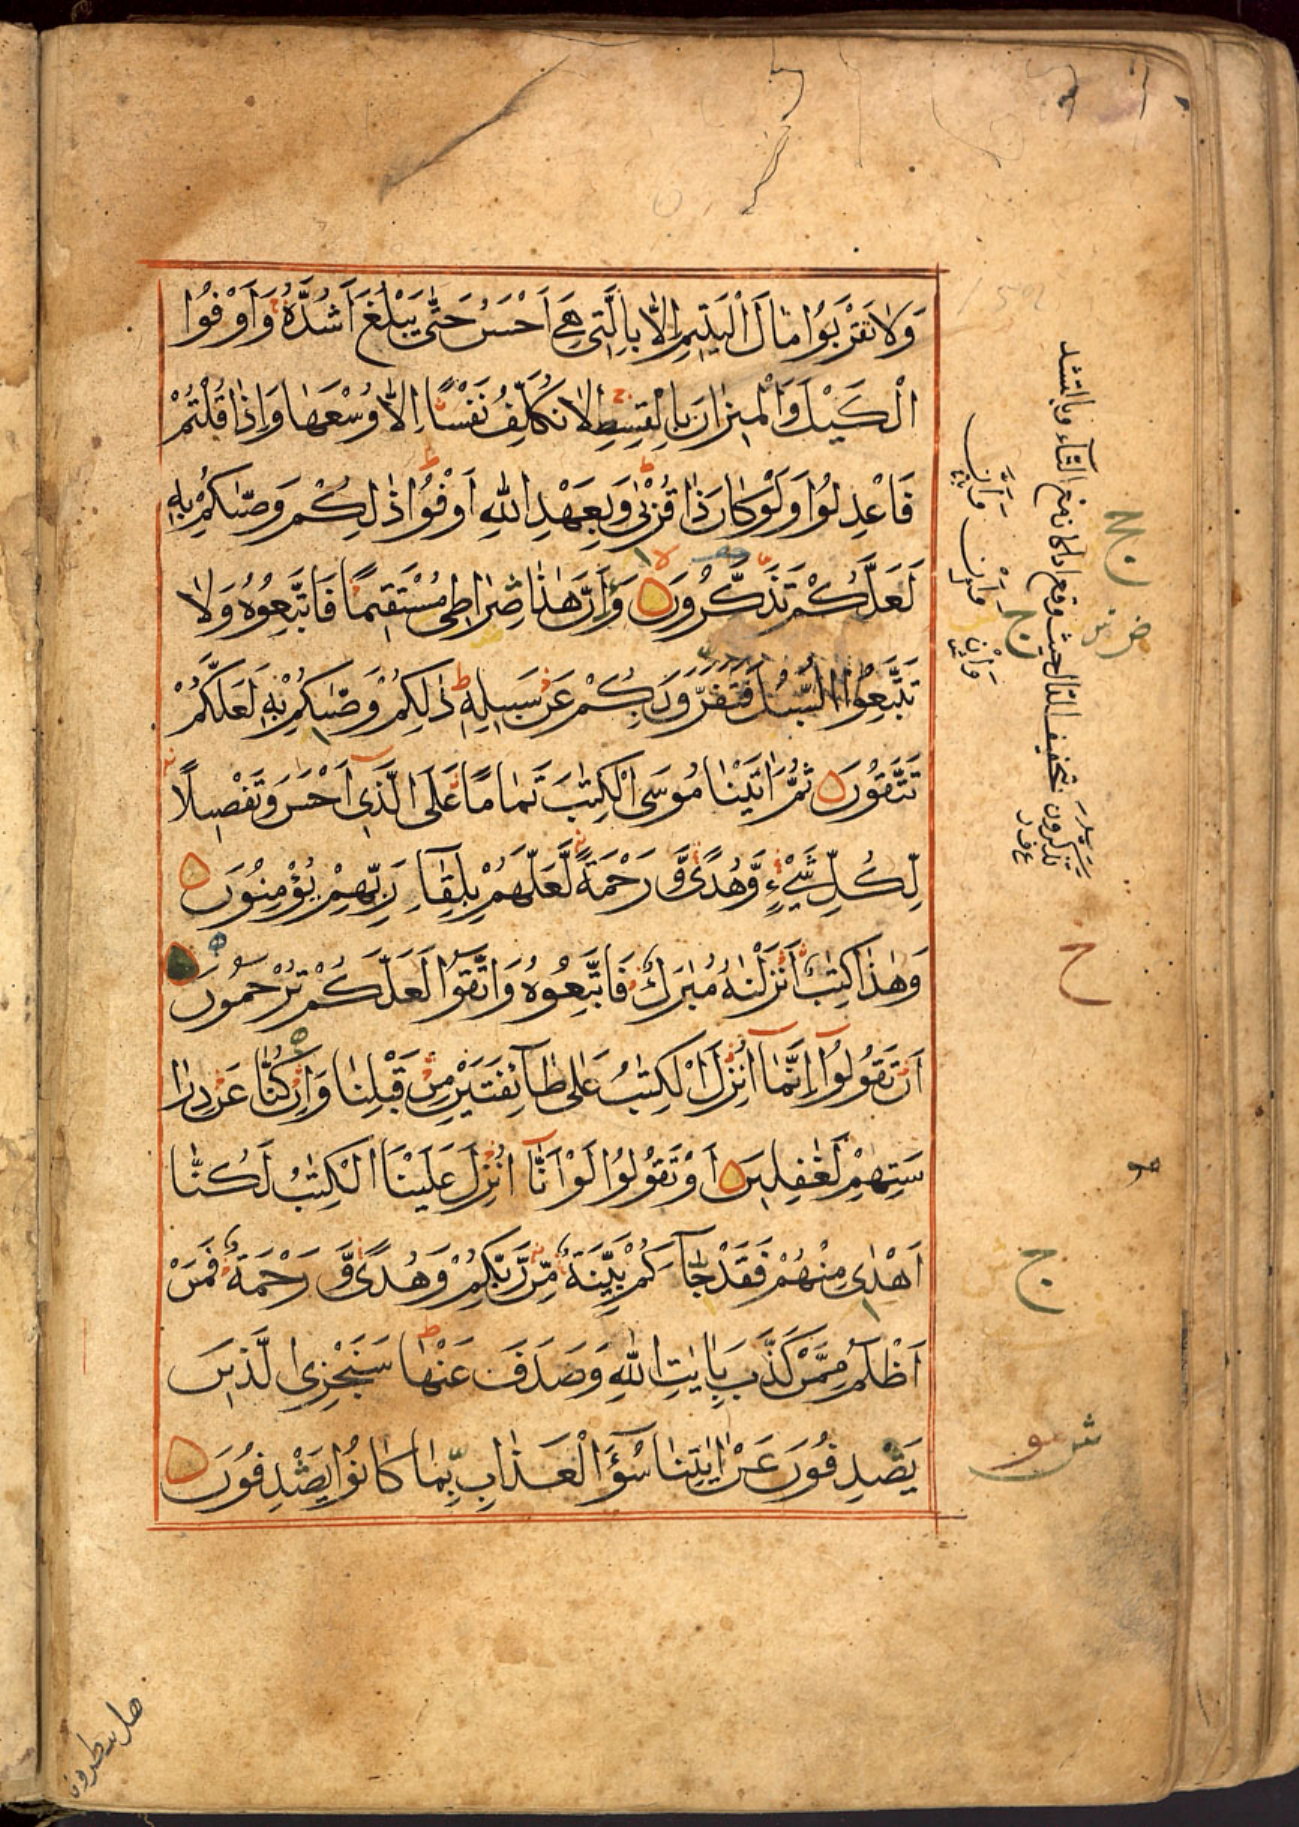 وَلَا تَقْرَبُوا مَالَ الْيَتِيمِ إِلَّا بِالَّتِي هِيَ أَحْسَنُ حَتَّىٰ يَبْلُغَ أَشُدَّهُ وَأَوْفُوا
الْكَيْلَ وَالْمِيزَانَ بِالْقِسْطِ لَا نُكَلِّفُ نَفْسًا إِلَّا وُسْعَهَا وَإِذَا قُلْتُمْ
فَاعْدِلُوا وَلَوْ كَانَ ذَا قُرْبَىٰ وَبِعَهْدِ اللَّهِ أَوْفُوا ذَٰلِكُمْ وَصَّىٰكُمْ بِهِ
لَعَلَّكُمْ تَذَكَّرُونَ وَأَنَّ هَٰذَا صِرَاطِي مُسْتَقِيمًا فَاتَّبِعُوهُ وَلَا
تَتَّبِعُوا السُّبُلَ فَتَفَرَّقَ بِكُمْ عَنْ سَبِيلِهِ ذَٰلِكُمْ وَصَّىٰكُمْ بِهِ لَعَلَّكُمْ
تَتَّقُونَ ثُمَّ اٰتَيْنَا مُوسَى الْكِتٰبَ تَمَامًا عَلَى الَّذِي أَحْسَنَ وَتَفْصِيلًا
لِّكُلِّ شَيْءٍ وَّهُدًى وَّرَحْمَةً لَّعَلَّهُمْ بِلِقَآءِ رَبِّهِمْ يُؤْمِنُونَ
وَهٰذَا كِتٰبٌ أَنْزَلْنٰهُ مُبٰرَكٌ فَاتَّبِعُوهُ وَاتَّقُوا لَعَلَّكُمْ تُرْحَمُونَ
أَنْ تَقُولُوٓا إِنَّمَآ أُنْزِلَ الْكِتٰبُ عَلَىٰ طَآئِفَتَيْنِ مِنْ قَبْلِنَا وَإِنْ كُنَّا عَنْ دِرَا
سَتِهِمْ لَغٰفِلِينَ أَوْ تَقُولُوا لَوْ أَنَّآ أُنْزِلَ عَلَيْنَا الْكِتٰبُ لَكُنَّا
أَهْدَىٰ مِنْهُمْ فَقَدْ جَآءَكُمْ بَيِّنَةٌ مِّنْ رَّبِّكُمْ وَهُدًى وَّرَحْمَةٌ فَمَنْ
أَظْلَمُ مِمَّنْ كَذَّبَ بِاٰيٰتِ اللَّهِ وَصَدَفَ عَنْهَا سَنَجْزِي الَّذِينَ
يَصْدِفُونَ عَنْ اٰيٰتِنَا سُوٓءَ الْعَذَابِ بِمَا كَانُوا يَصْدِفُونَ
وَأَنَّ وَأَنْ وَإِنَّ
ج
ج
ح
ج